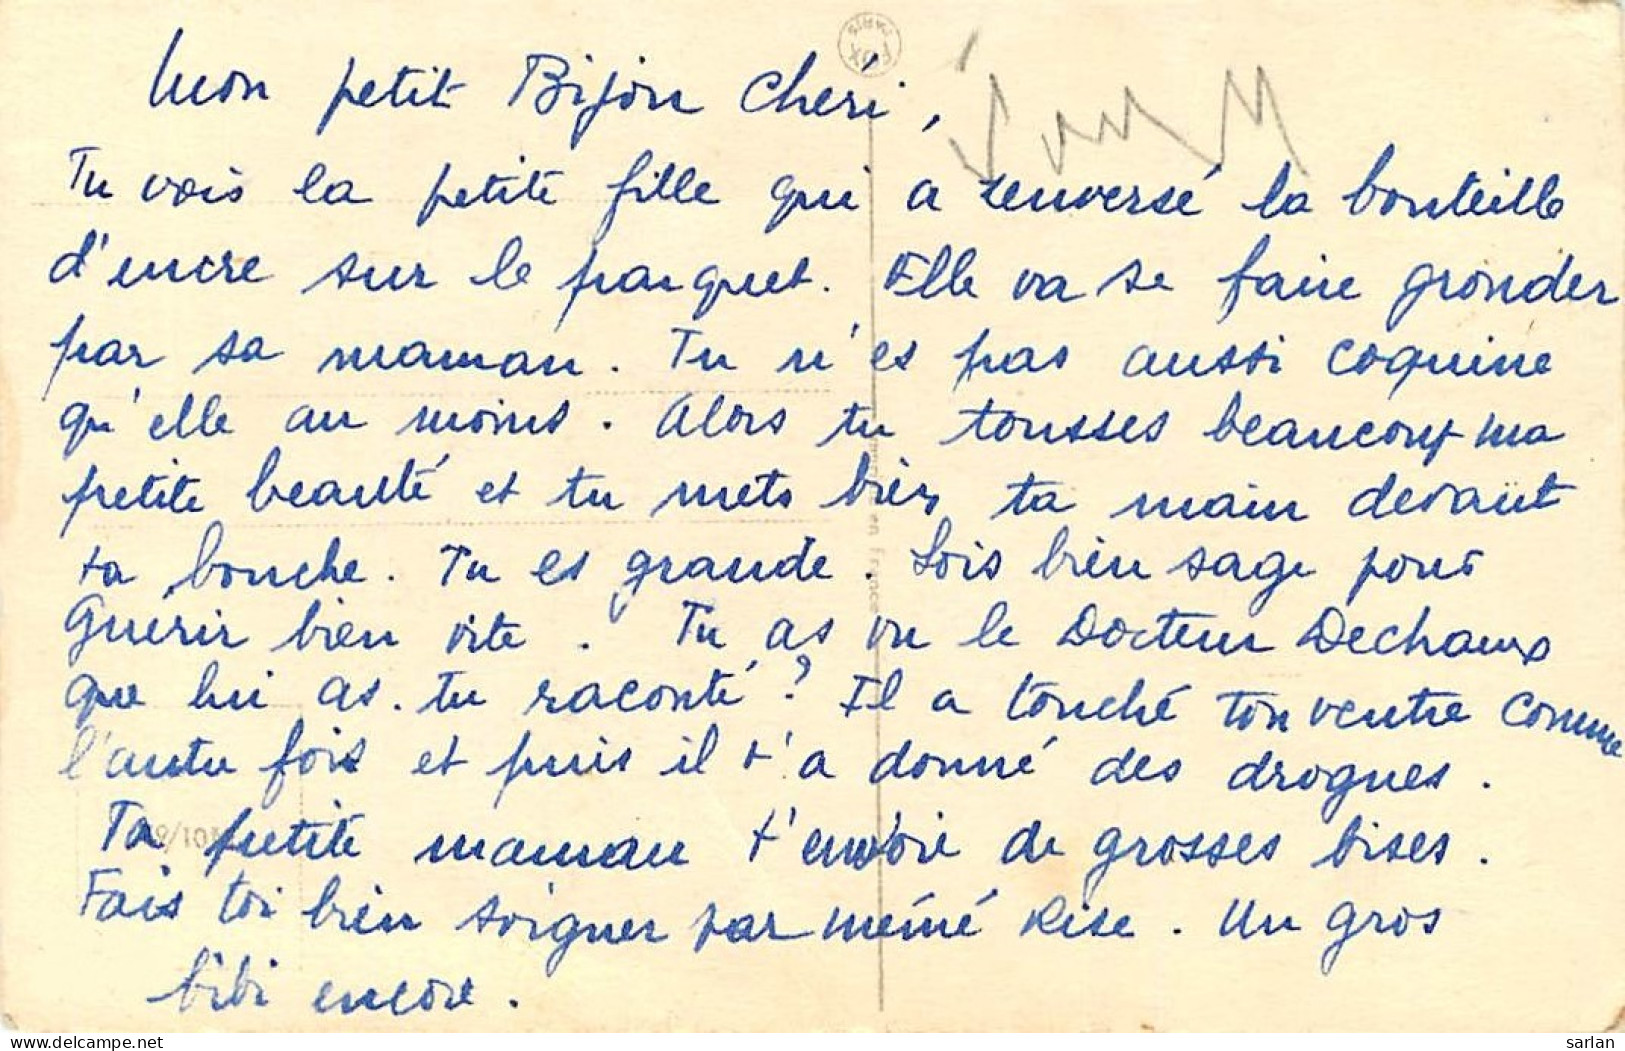 FOX
PARIS
Mon petit Bijou Cheri,
Tu vois la petite fille qui a renversé la bouteille
d'encre sur le parquet. Elle va se faire gronder
par sa maman. Tu n'es pas aussi coquine
qu'elle au moins. Alors tu tousses beaucoup ma
petite beauté et tu mets bien ta main devant
ta bouche. Tu es grande. Sois bien sage pour
Guerir bien vite. Tu as vu le Docteur Dechaux
que lui as-tu raconté? Il a touché ton ventre comme
l'autre fois et puis il t'a donné des drogues.
Ta petite maman t'envoie de grosses bises.
Fais toi bien soigner par mémé Rise. Un gros
bibi encore.
en France
delcampe.net
sarlan